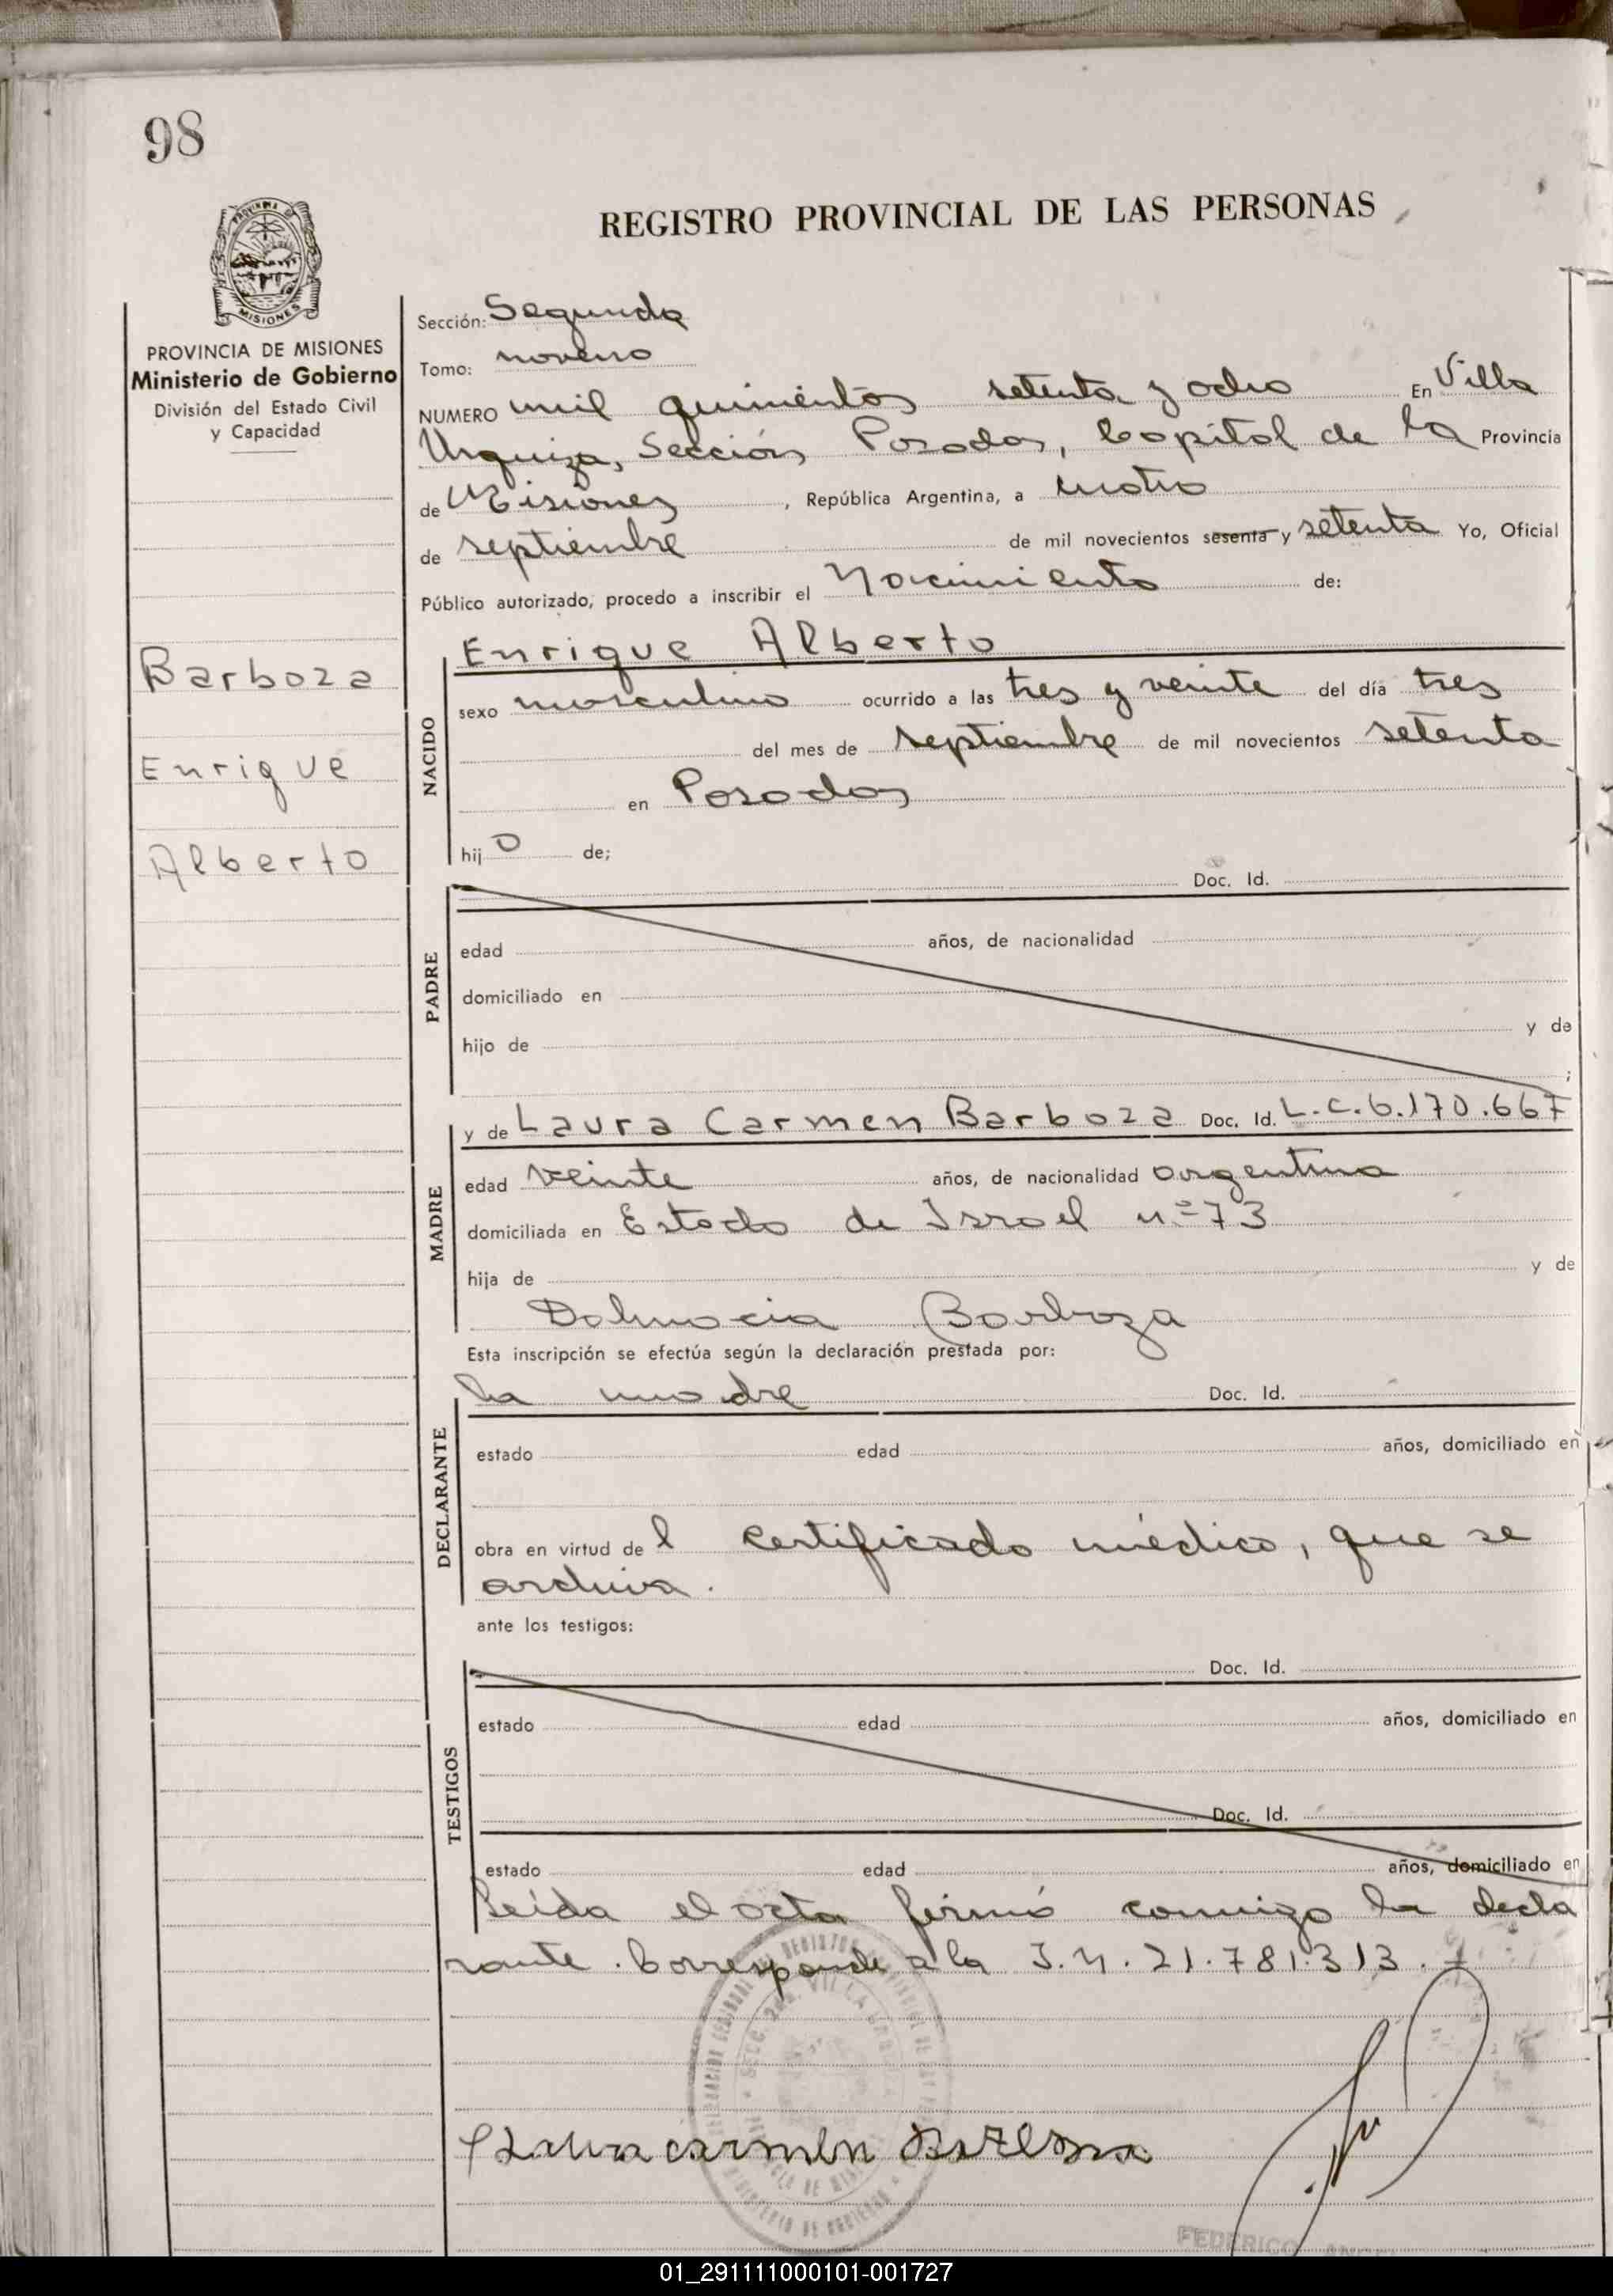 98
REGISTRO PROVINCIAL DE LAS PERSONAS
MISIONES
PROVINCIA DE MISIONES
Ministerio de Gobierno
División del Estado Civil
y Capacidad
Barboza
Enrique
Alberto
Sección: Segunda
Tomo: noveno
NUMERO mil quinientos setenta y ocho En Villa
Urquiza, Sección Posadas, Capital de la Provincia
de Misiones, República Argentina, a cuatro
de septiembre de mil novecientos sesenta y setenta Yo, Oficial
Público autorizado, procedo a inscribir el Nacimiento de:
NACIDO
Enrique Alberto
sexo masculino ocurrido a las tres y veinte del día tres
del mes de septiembre de mil novecientos setenta
en Posadas
hijo de;
PADRE
Doc. Id.
edad años, de nacionalidad
domiciliado en
hijo de y de
;
MADRE
y de Laura Carmen Barboza Doc. Id. L.C.6.170.667
edad veinte años, de nacionalidad argentina
domiciliada en Estado de Israel nº 73
hija de y de
Dalmacia Barboza
Esta inscripción se efectúa según la declaración prestada por:
DECLARANTE
la madre Doc. Id.
estado edad años, domiciliado en
obra en virtud del certificado médico, que se
archiva.
ante los testigos:
TESTIGOS
Doc. Id.
estado edad años, domiciliado en
Doc. Id.
estado edad años, domiciliado en
Leída el acta firmó conmigo la decla
rante. Corresponde a la I.N. 21.781.313.
Laura carmen
FEDERICO ANGEL
01_291111000101-001727